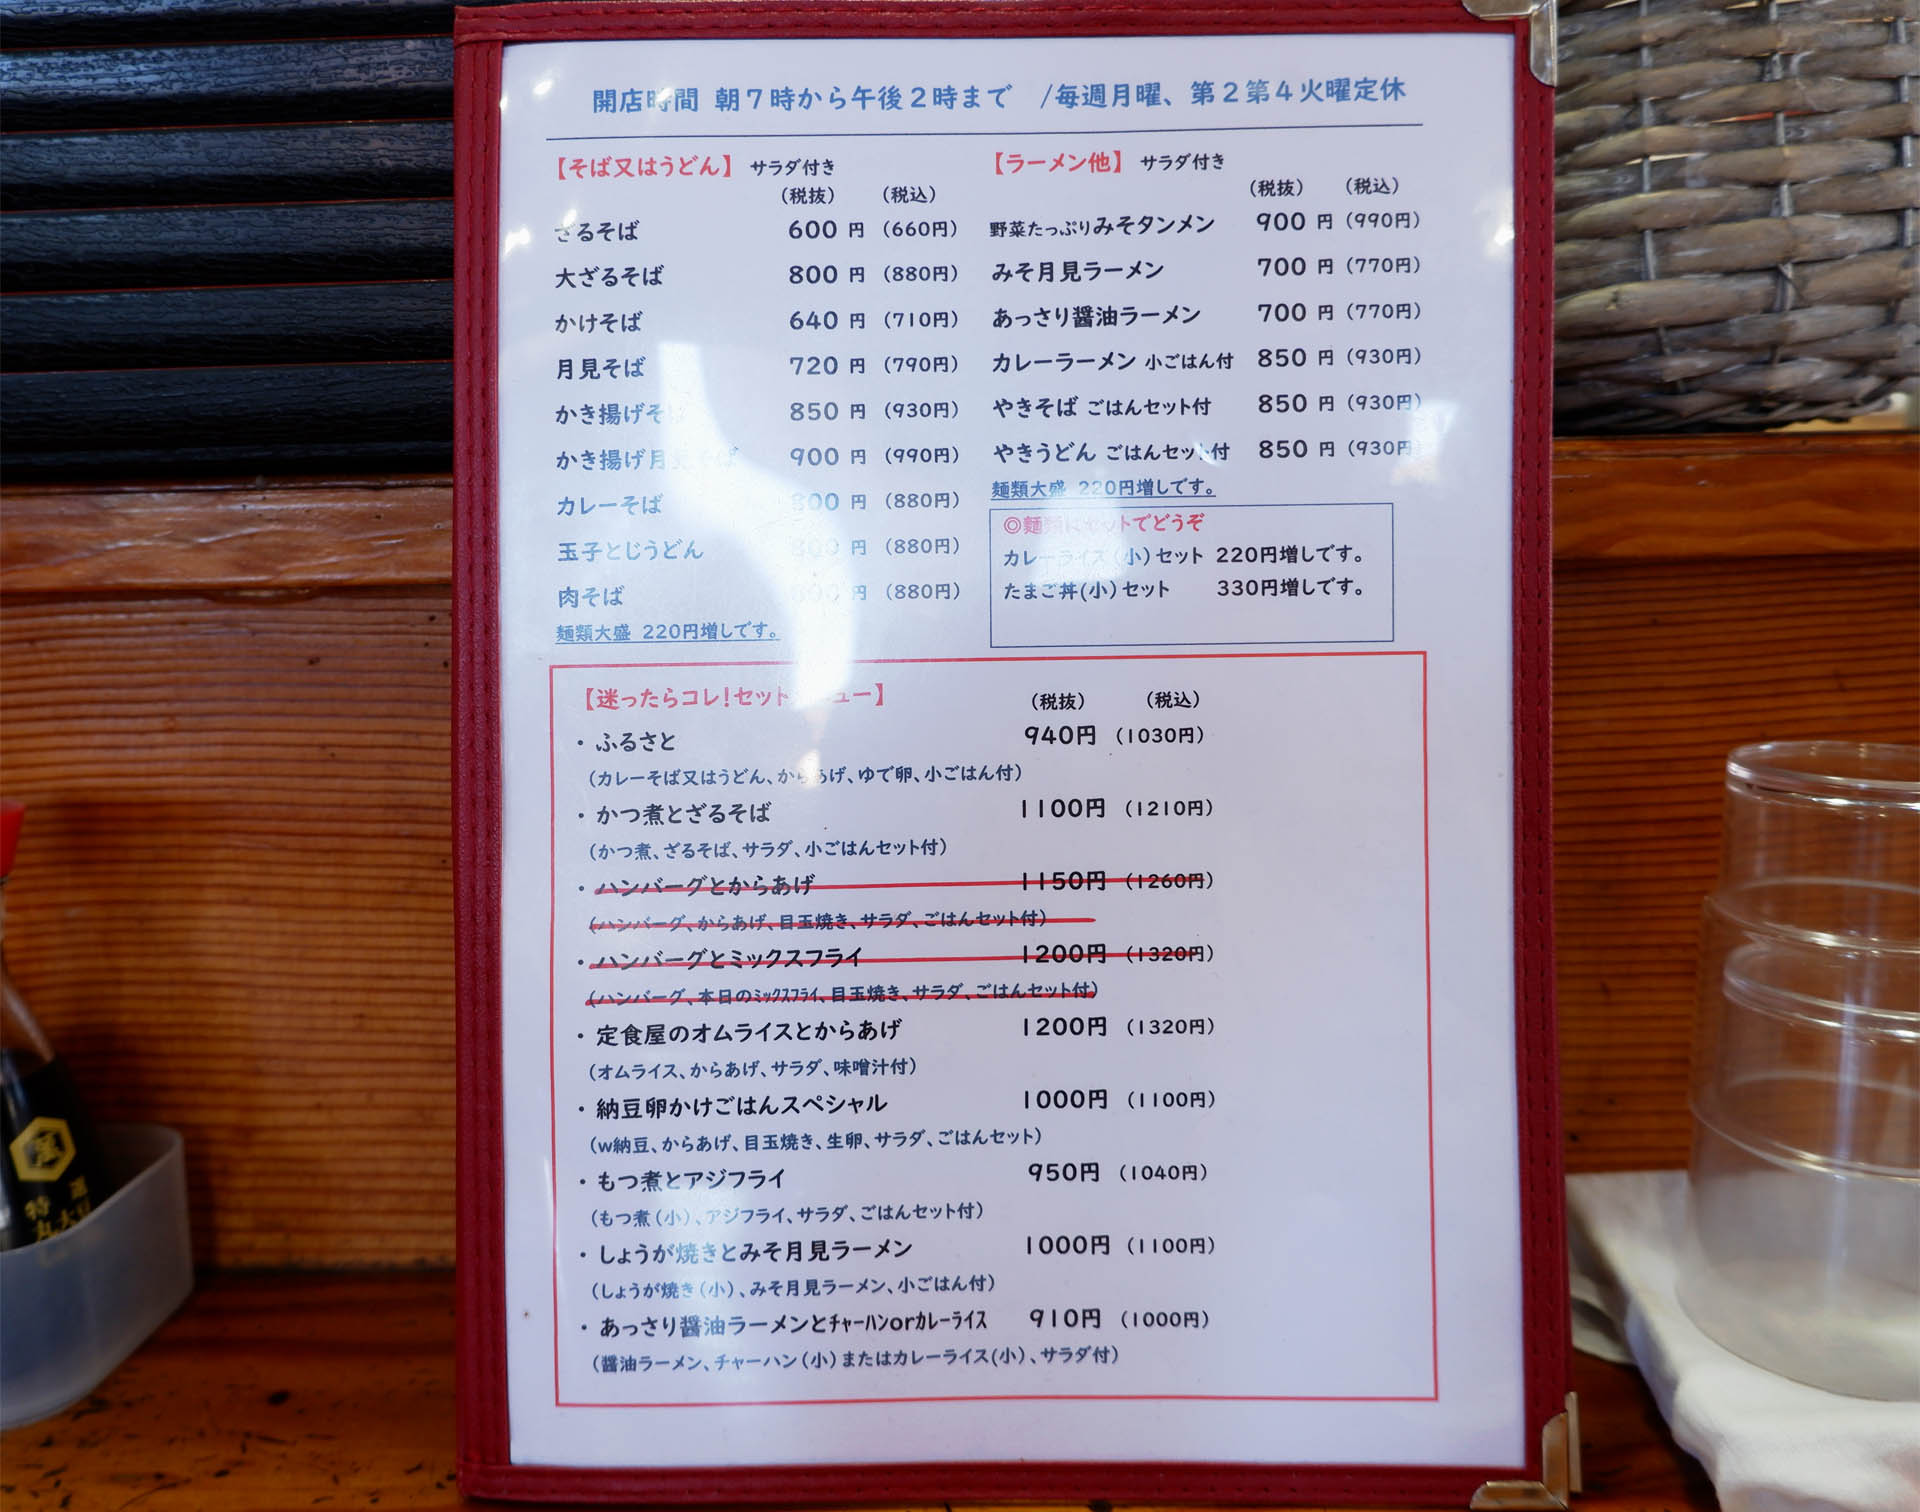 開店時間 朝7時から午後2時まで /毎週月曜、第2第4火曜定休
【そば又はうどん】 サラダ付き
(税抜) (税込)
ざるそば 600円 (660円)
大ざるそば 800円 (880円)
かけそば 640円 (710円)
月見そば 720円 (790円)
かき揚げそば 850円 (930円)
かき揚げ月見そば 900円 (990円)
カレーそば 800円 (880円)
玉子とじうどん 800円 (880円)
肉そば 800円 (880円)
麺類大盛 220円増しです。
【ラーメン他】 サラダ付き
(税抜) (税込)
野菜たっぷりみそタンメン 900円 (990円)
みそ月見ラーメン 700円 (770円)
あっさり醤油ラーメン 700円 (770円)
カレーラーメン 小ごはん付 850円 (930円)
やきそば ごはんセット付 850円 (930円)
やきうどん ごはんセット付 850円 (930円)
麺類大盛 220円増しです。
◎麺類にセットでどうぞ
カレーライス(小)セット 220円増しです。
たまご丼(小)セット 330円増しです。
【迷ったらコレ!セットメニュー】 (税抜) (税込)
・ふるさと 940円 (1030円)
(カレーそば又はうどん、からあげ、ゆで卵、小ごはん付)
・かつ煮とざるそば 1100円 (1210円)
(かつ煮、ざるそば、サラダ、小ごはんセット付)
・ハンバーグとからあげ 1150円 (1260円)
(ハンバーグ、からあげ、目玉焼き、サラダ、ごはんセット付)
・ハンバーグとミックスフライ 1200円 (1320円)
(ハンバーグ、本日のミックスフライ、目玉焼き、サラダ、ごはんセット付)
・定食屋のオムライスとからあげ 1200円 (1320円)
(オムライス、からあげ、サラダ、味噌汁付)
・納豆卵かけごはんスペシャル 1000円 (1100円)
(w納豆、からあげ、目玉焼き、生卵、サラダ、ごはんセット)
・もつ煮とアジフライ 950円 (1040円)
(もつ煮(小)、アジフライ、サラダ、ごはんセット付)
・しょうが焼きとみそ月見ラーメン 1000円 (1100円)
(しょうが焼き(小)、みそ月見ラーメン、小ごはん付)
・あっさり醤油ラーメンとチャーハンorカレーライス 910円 (1000円)
(醤油ラーメン、チャーハン(小)またはカレーライス(小)、サラダ付)